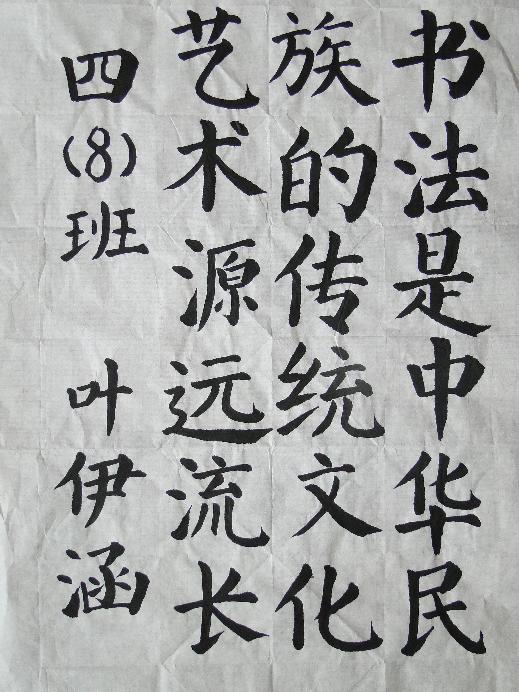 书法是中华民
族的传统文化
艺术源远流长
四(8)班 叶伊涵